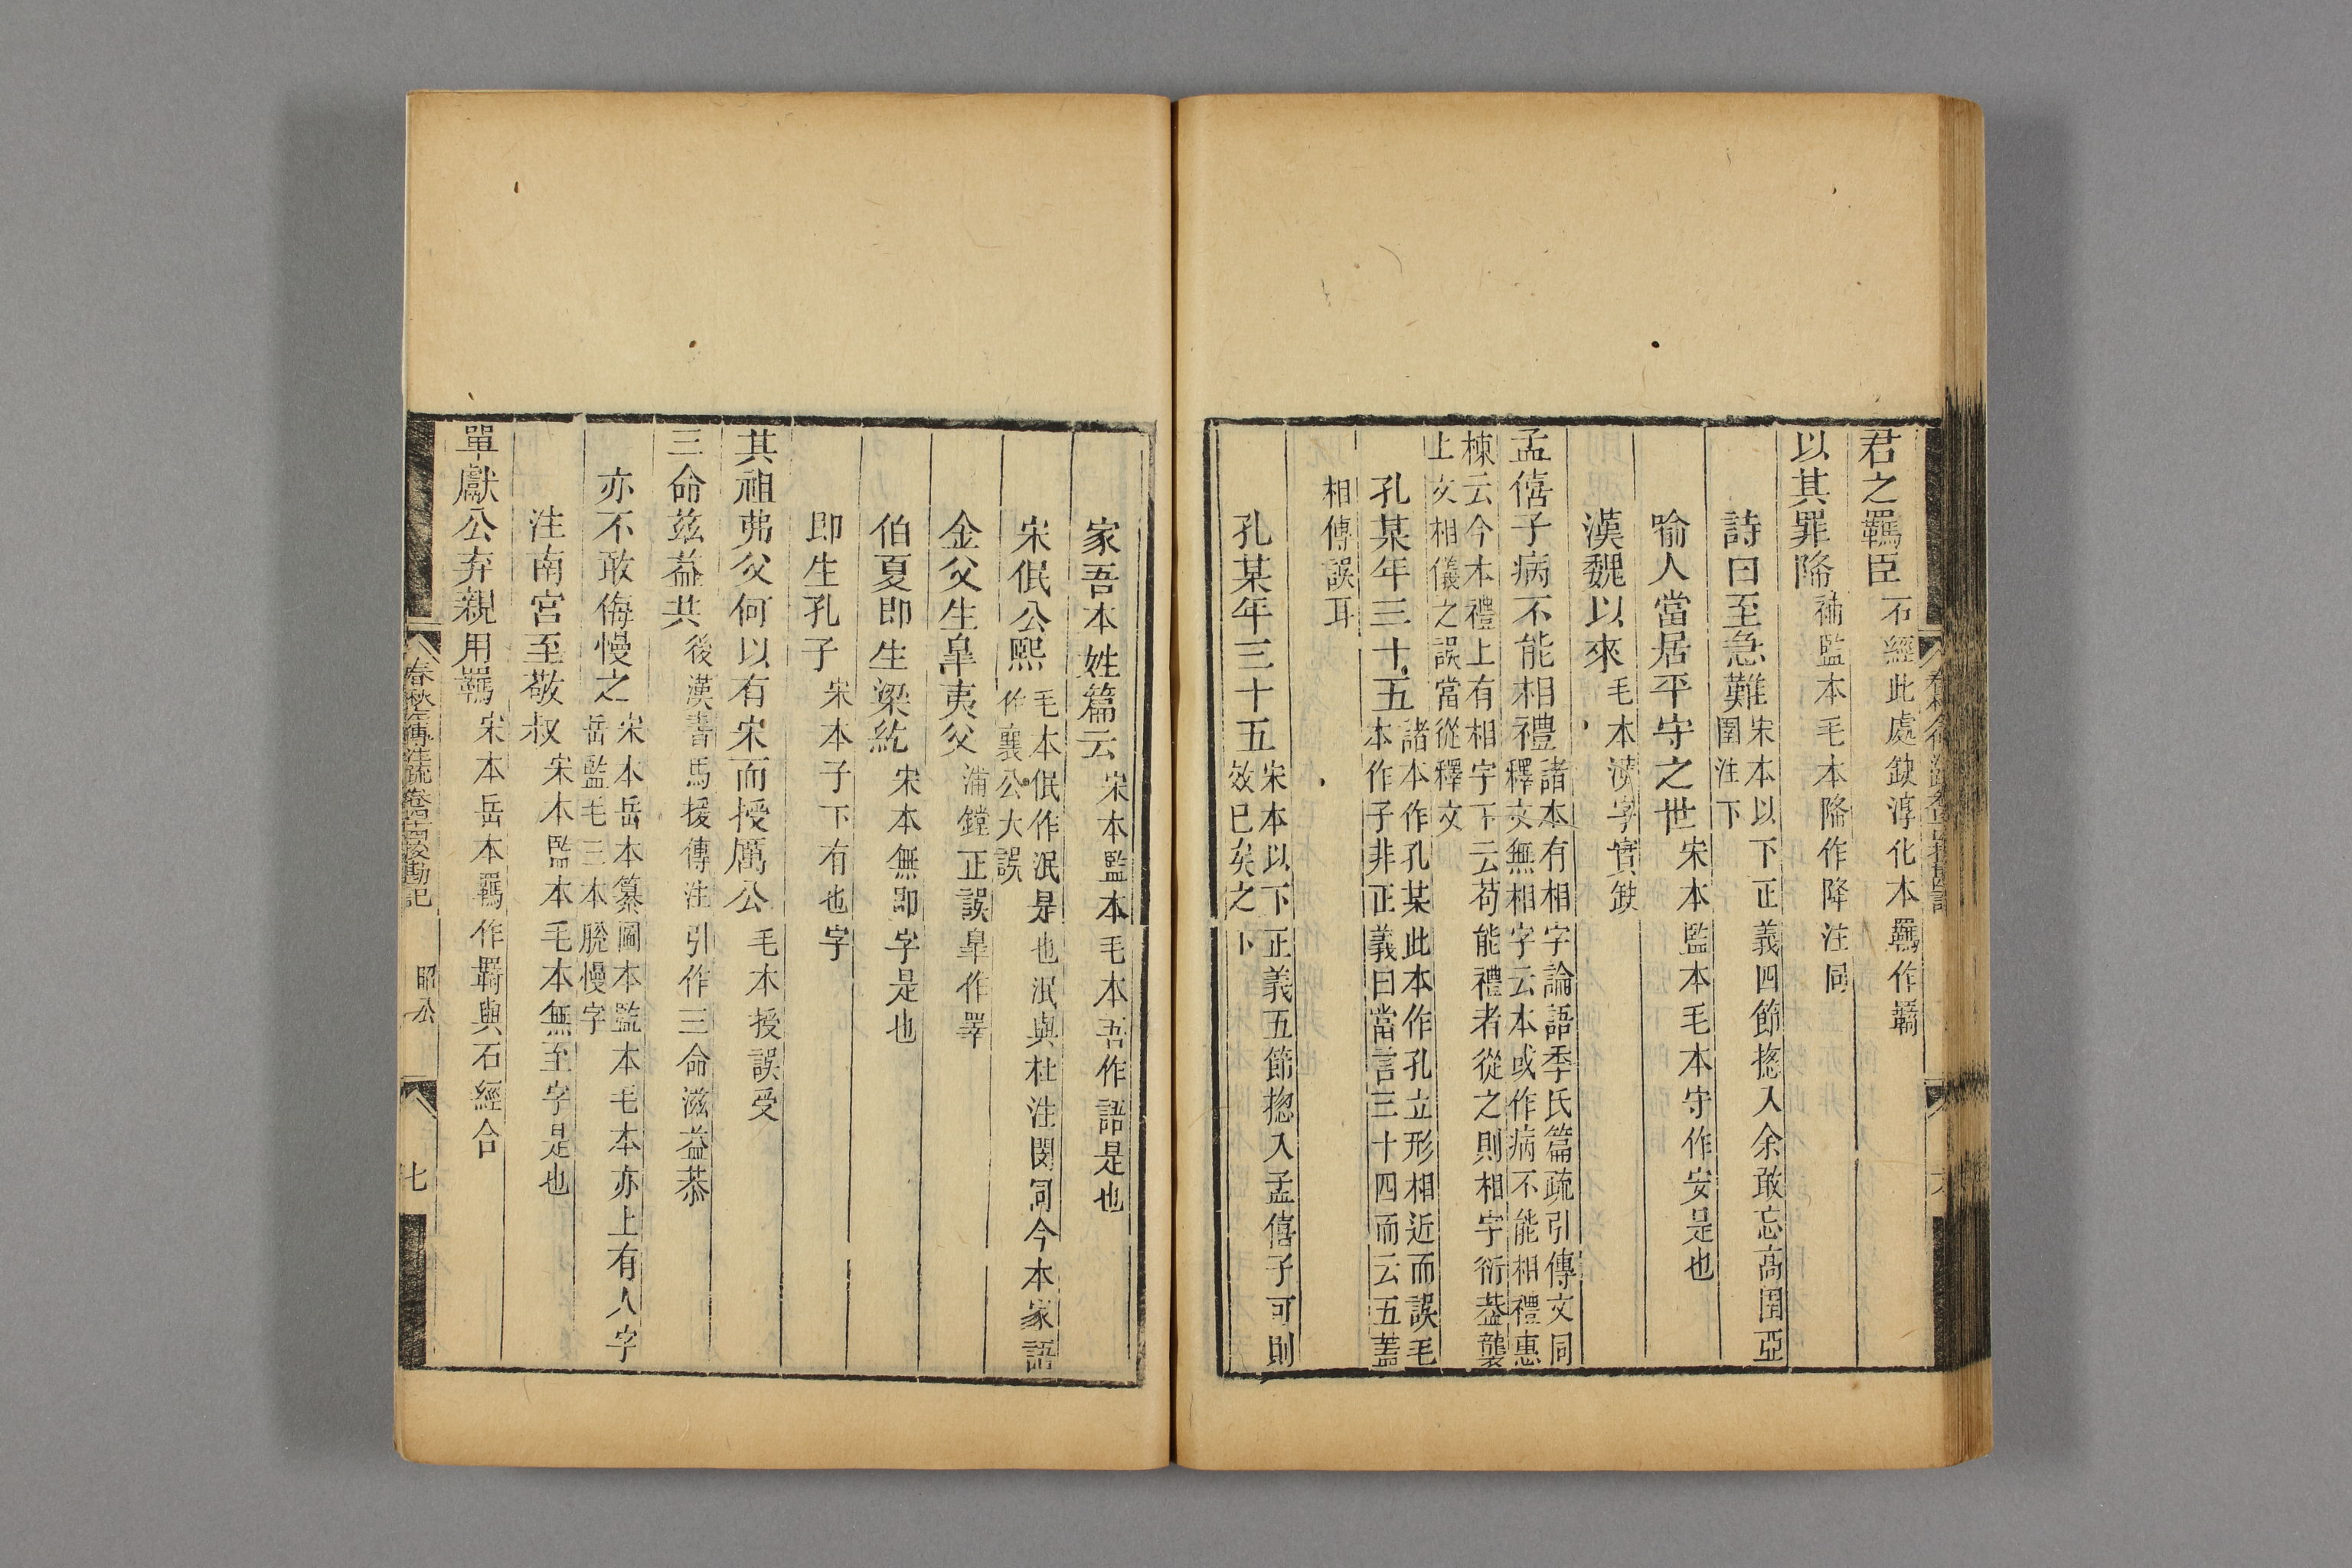 君之羈臣 石經此處缺淳化本羈作羇
以其罪降 補監本毛本降作降注同
詩曰至急難 宋本以下正義四節揔入余敢忘高圉亞
圉注下
喻人當居平守之世 宋本監本毛本守作安是也
漢魏以來 毛本漢字實缺
孟僖子病不能相禮 諸本有相字論語季氏篇疏引傳文同
釋文無相字云本或作病不能相禮惠
棟云今本禮上有相字下云苟能禮者從之則相字衍葢襲
上文相儀之誤當從釋文
孔某年三十五 諸本作孔某此本作孔立形相近而誤毛
本作子非正義曰當言三十四而云五蓋
相傳誤耳
孔某年三十五 宋本以下正義五節揔入孟僖子可則
效已矣之下
家吾本姓篇云 宋本監本毛本吾作語是也
宋佷公熙 毛本佷作泯是也泯與杜注閔同今本家語
作襄公大誤
金父生皐夷父 浦鏜正誤皐作睪
伯夏即生梁紇 宋本無即字是也
即生孔子 宋本子下有也字
其祖弗父何以有宋而授厲公 毛本授誤受
三命兹益共 後漢書馬援傳注引作三命滋益恭
亦不敢侮慢之 宋本岳本纂圖本監本毛本亦上有人字
岳監毛三本脫慢字
注南宮至敬叔 宋本監本毛本無至字是也
單獻公弃親用羈 宋本岳本羈作羇與石經合
春秋左傳注疏卷四十四挍勘記 昭公 七